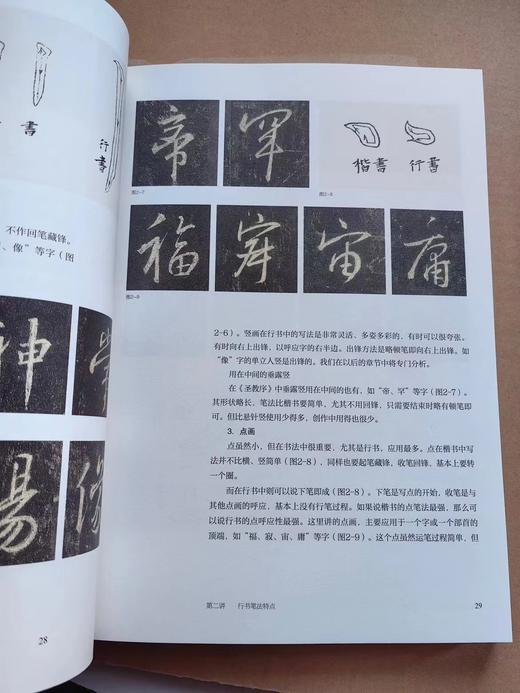 書
行書
不作回笔藏锋。
、像”等字（图
28
帝
罕
图2-7
楷書 行書
图2-8
福
宙
庸
图2-9
2-6）。竖画在行书中的写法是非常灵活、多姿多彩的，有时可以很夸张。
有时向右上出锋，以呼应字的右半边。出锋方法是略顿笔即向右上出锋。如
“像”字的单立人竖是出锋的。我们在以后的章节中将专门分析。
用在中间的垂露竖
在《圣教序》中垂露竖用在中间的也有，如“帝、罕”等字（图2-7）。
其形状略长，笔法比楷书要简单，尤其不用回锋，只需要结束时略有顿笔即
可。但比悬针竖使用少得多，创作中用得也很少。
3. 点画
点虽然小，但在书法中很重要，尤其是行书，应用最多。点在楷书中写
法并不比横、竖简单（图2-8），同样也要起笔藏锋，收笔回锋，基本上要转
一个圈。
而在行书中则可以说下笔即成（图2-8）。下笔是写点的开始，收笔是与
其他点画的呼应，基本上没有行笔过程。如果说楷书的点笔法最强，那么可
以说行书的点呼应性最强。这里讲的点画，主要应用于一个字或一个部首的
顶端，如“福、寂、宙、庸”等字（图2-9）。这个点虽然运笔过程简单，但
第二讲 行书笔法特点
29
神